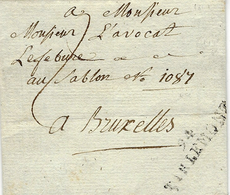 a Monsieur
Monsieur L'avocat
Lefebure
au Sablon No 1087
a Bruxelles
94
TIRLEMONT